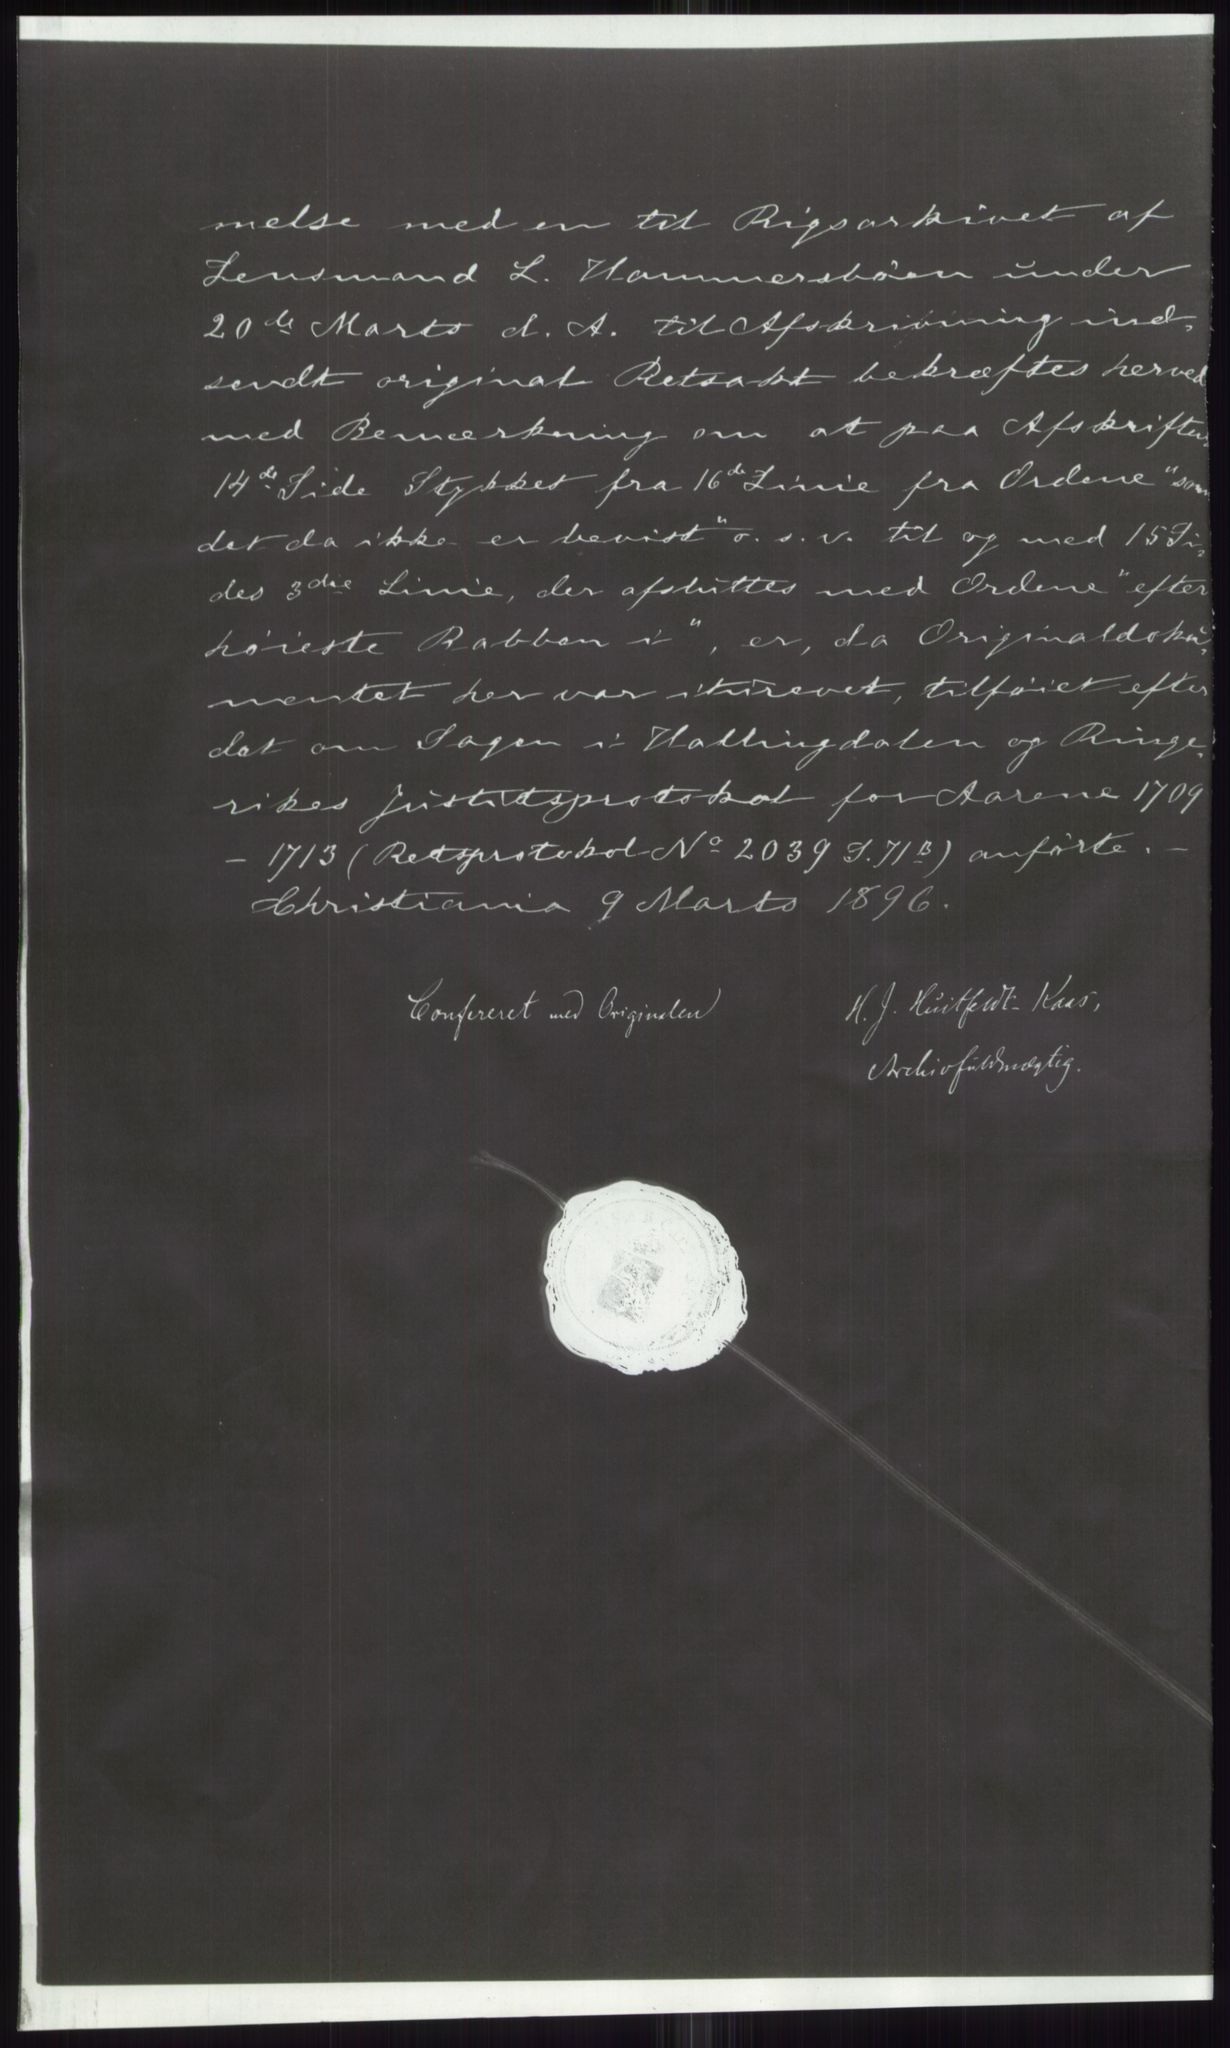 melse med en til Rigsarkivet af
Lensmand L. Hammersbøen under
20de Marts d. A. til Afskrivning ind-
sendt original Retsakt bekræftes herved
med Bemærkning om at paa Afskriftens
14de Side Stykket fra 16de Linie fra Ordene "som
det da ikke er bevist" o. s. v. til og med 15 Si-
des 3die Linie, der afsluttes med Ordene "efter
høieste Rabben i", er, da Originaldoku-
mentet her var iturevet, tilføiet efter
det om Sagen i Hallingdalen og Ringe-
rikes Justitsprotokol for Aarene 1709
– 1713 (Retsprotokol No 2039 S. 71 B) anførte. –
Christiania 9 Marts 1896.
Confereret med Originalen
H. J. Huitfeldt-Kaas,
Archivfuldmægtig.